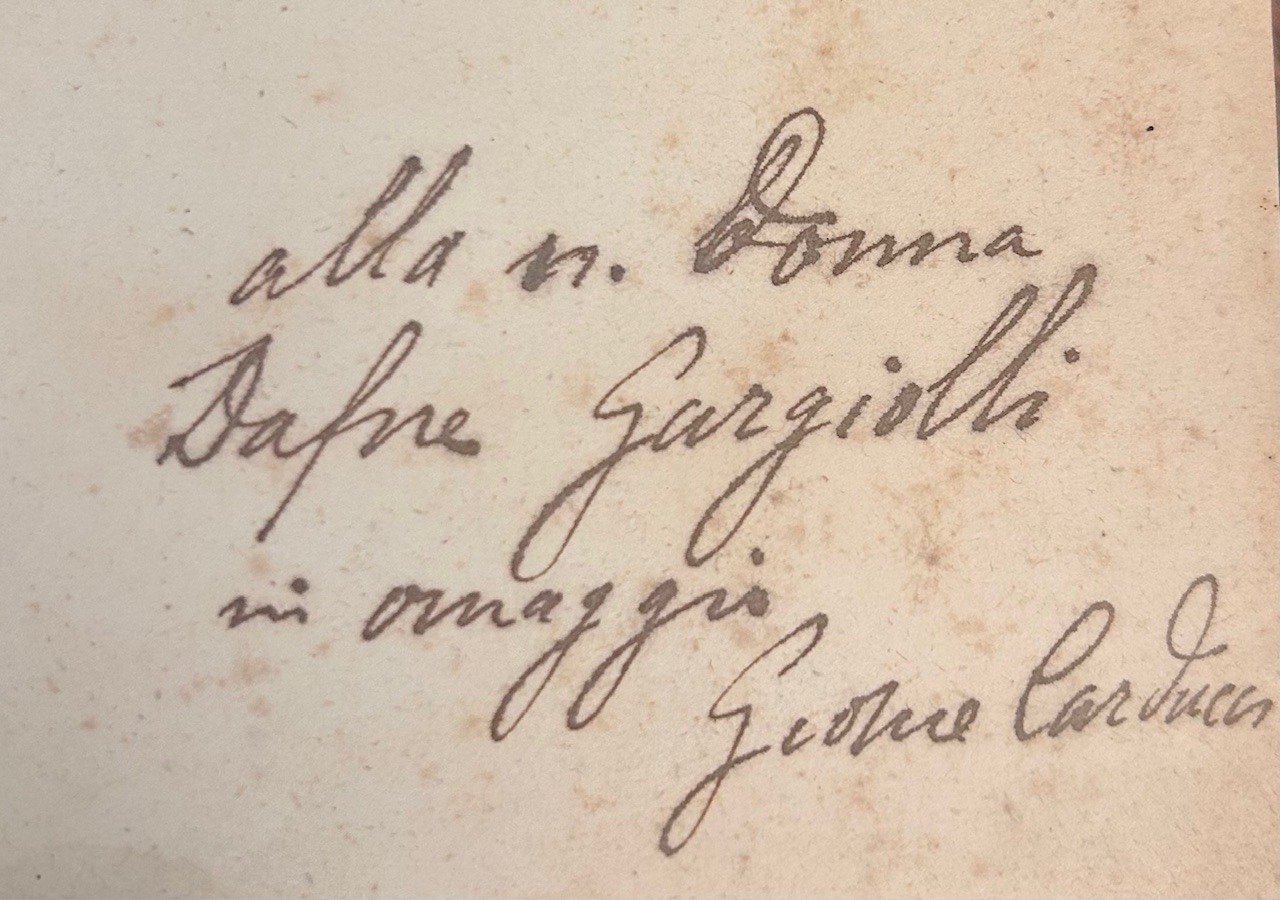 alla n. Donna
Dafne Gargiolli
in omaggio
Giosue Carducci